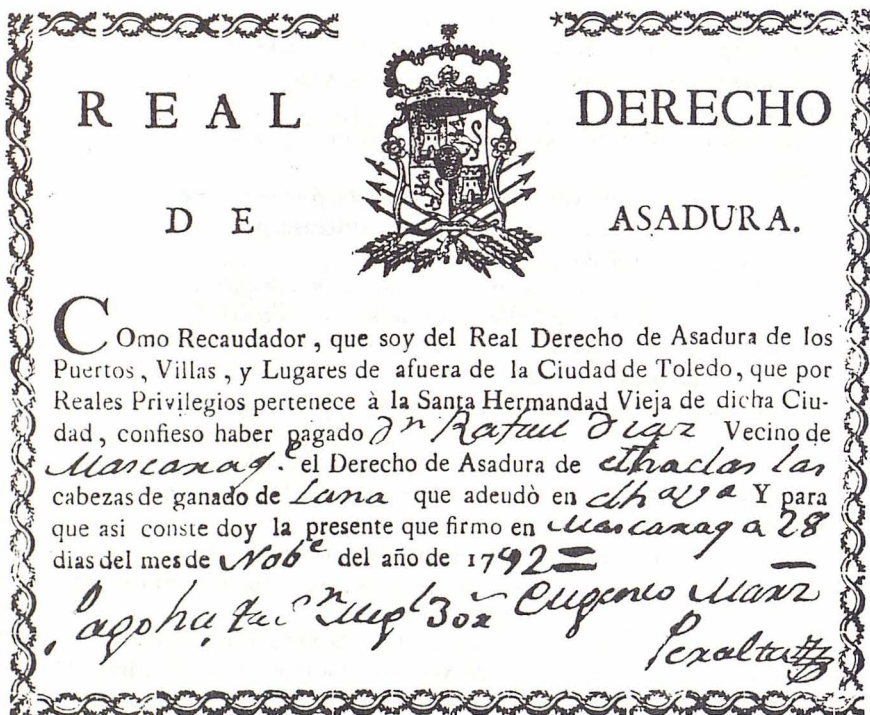 REAL DERECHO
DE ASADURA.
COmo Recaudador, que soy del Real Derecho de Asadura de los
Puertos, Villas, y Lugares de afuera de la Ciudad de Toledo, que por
Reales Privilegios pertenece à la Santa Hermandad Vieja de dicha Ciu-
dad, confieso haber pagado Dn Rafael Diaz Vecino de
Mascaraq.e el Derecho de Asadura de las
cabezas de ganado de Lana que adeudò en Y para
que asi conste doy la presente que firmo en Mascaraq a 28
dias del mes de Nobe del año de 1792=
Eugenio
Peralta